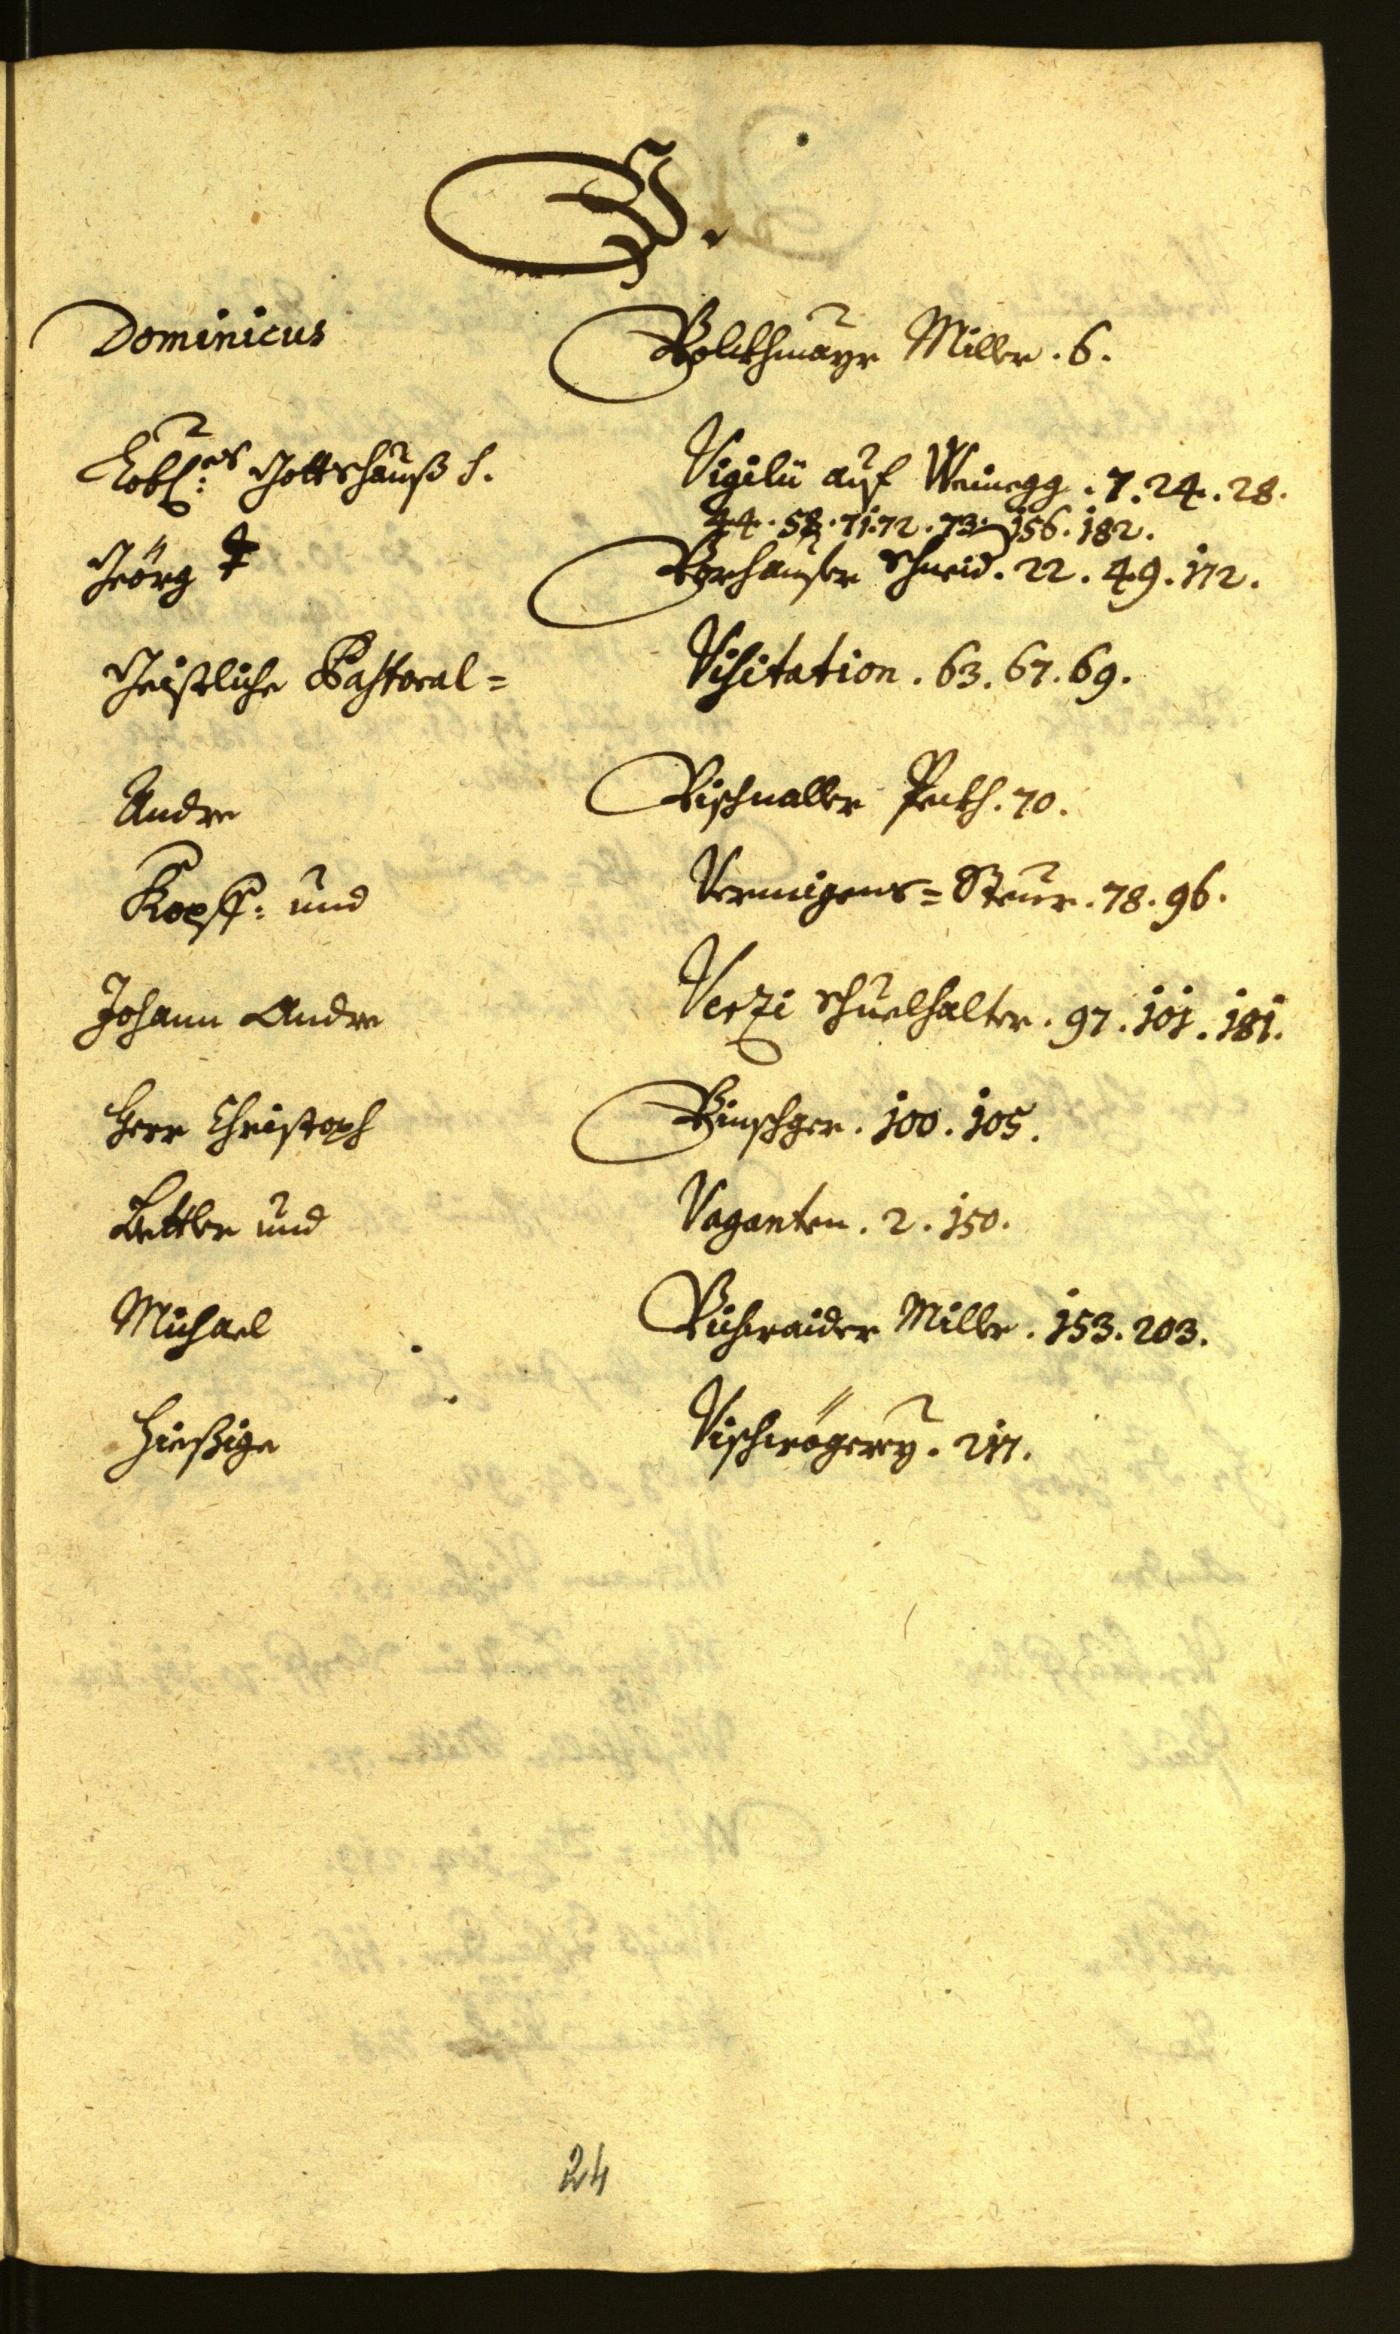 V.
Dominicus Volckhmayr Miller . 6 .
Lobl: es Gottshauß S. Vigilii auf Weinegg . 7. 24 . 28 .
44 . 58 . 71. 72 . 73. 156 . 182 .
Geörg ‡ Vorhauser Schneid . 22 . 49 . 172 .
Geistliche Pastoral= Visitation . 63. 67. 69 .
Andre Vischnaller Peckh . 70 .
Kopff: und Vermigens= Steur . 78 . 96 .
Johann Andre Verzi Schuelhalter . 97 . 101 . 181 .
Herr Christoph Vinschger . 100 . 105 .
Bettler und Vaganten . 2 . 150 .
Michael Vichraider Miller . 153. 203 .
Hießige Vischwögerey . 217 .
24